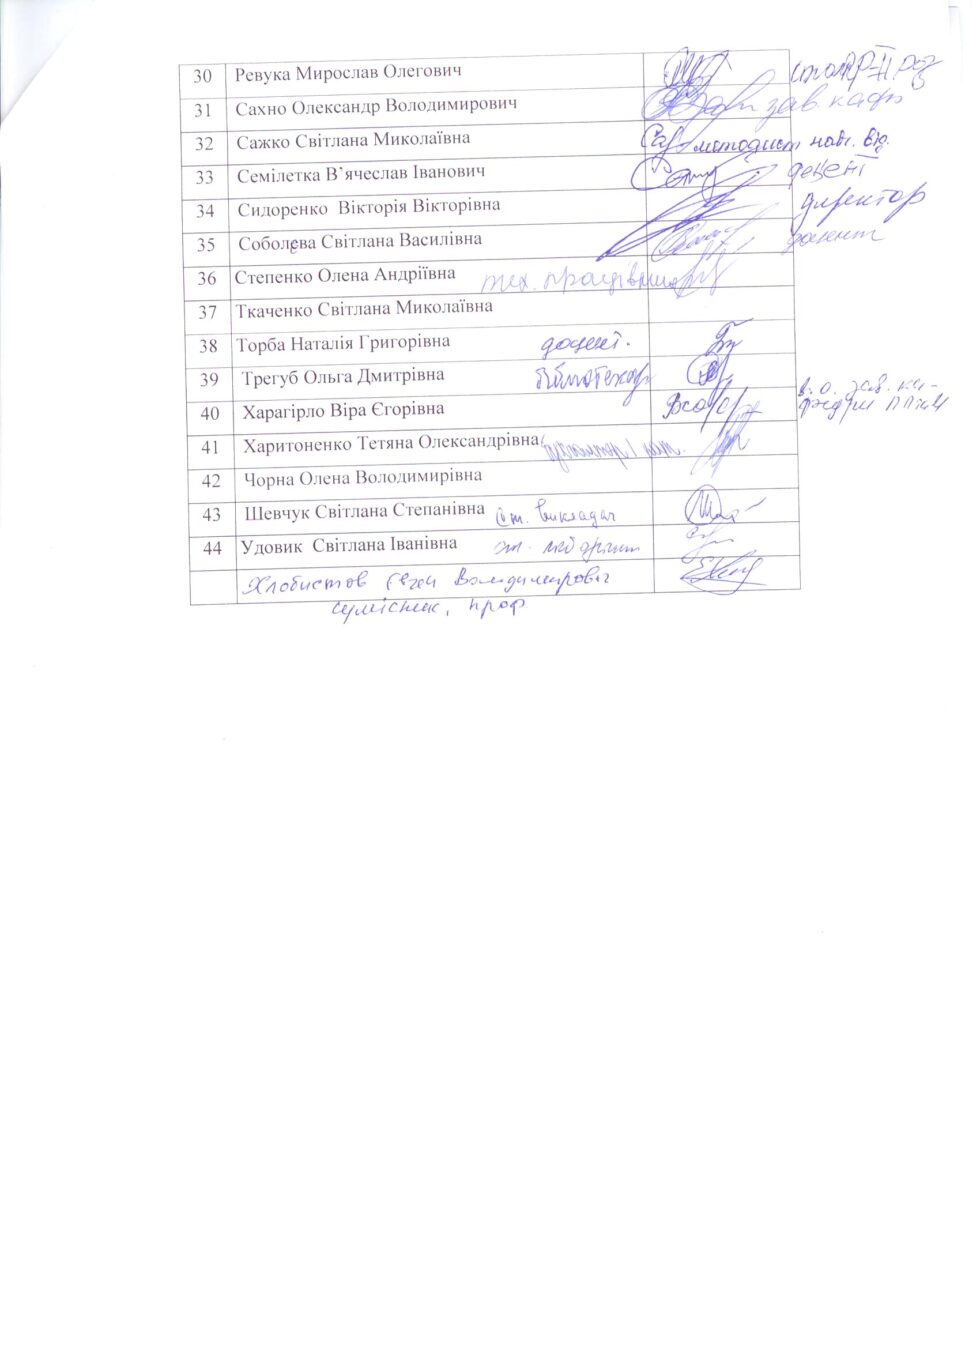 30 Ревука Мирослав Олегович
31 Сахно Олександр Володимирович зав. каф.
32 Сажко Світлана Миколаївна методист навч. від.
33 Семілетка В’ячеслав Іванович доцент
34 Сидоренко Вікторія Вікторівна директор
35 Соболєва Світлана Василівна доцент
36 Степенко Олена Андріївна тех. працівник
37 Ткаченко Світлана Миколаївна
38 Торба Наталія Григорівна доцент.
39 Трегуб Ольга Дмитрівна бібліотекар
40 Харагірло Віра Єгорівна в.о. зав. ка-
федри
41 Харитоненко Тетяна Олександрівна
42 Чорна Олена Володимирівна
43 Шевчук Світлана Степанівна ст. викладач
44 Удовик Світлана Іванівна
Хлобистов Євген Володимирович
сумісник, проф